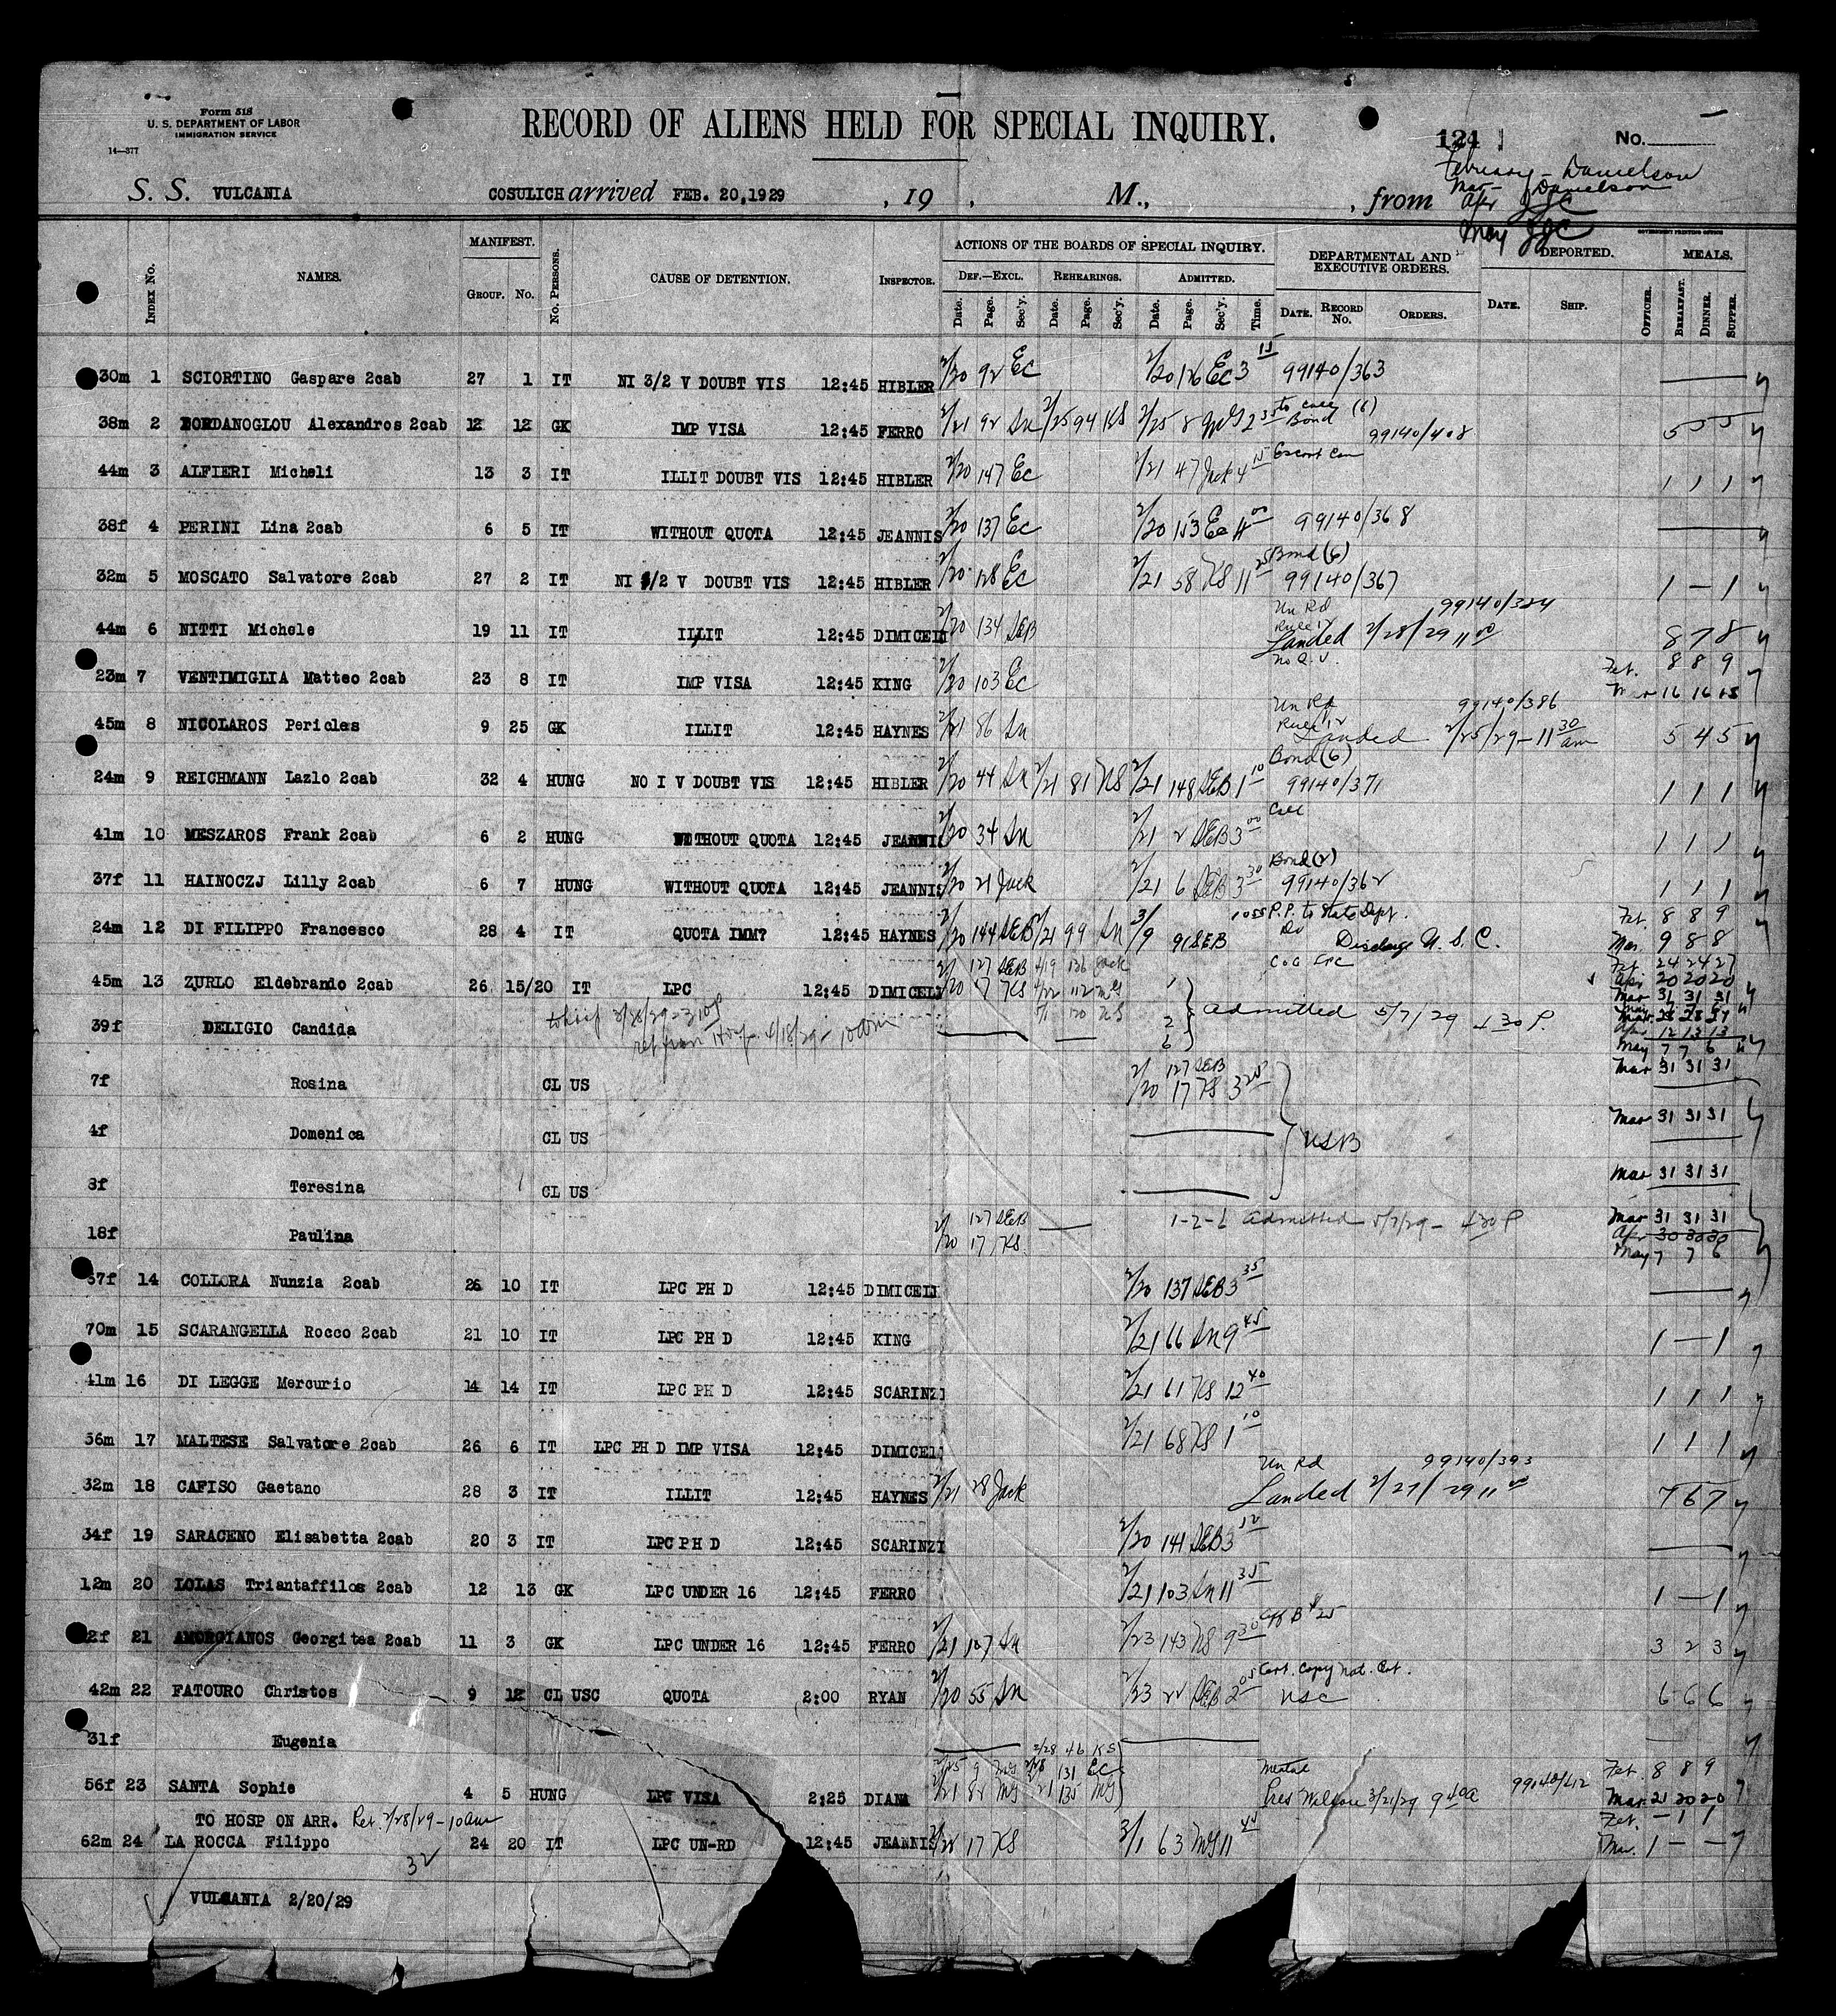 Form 318
U. S. DEPARTMENT OF LABOR
IMMIGRATION SERVICE
14—377
RECORD OF ALIENS HELD FOR SPECIAL INQUIRY.
124
No.
February - Danielson
Mar - Danielson
Apr JJC
May JJC
S. S. VULCANIA COSULICH arrived FEB. 20,1929 , 19 , M., , from
INDEX No. NAMES. MANIFEST. GROUP. No. No. PERSONS. CAUSE OF DETENTION. INSPECTOR. ACTIONS OF THE BOARDS OF SPECIAL INQUIRY. DEPARTMENTAL AND EXECUTIVE ORDERS. DEPORTED. MEALS.
DEF.—EXCL. REHEARINGS. ADMITTED.
Date. Page. Sec'y. Date. Page. Sec'y. Date. Page. Sec'y. Time. DATE. RECORD No. ORDERS. DATE. SHIP. OFFICER. BREAKFAST. DINNER. SUPPER.
30m 1 SCIORTINO Gaspare 2cab 27 1 IT NI 3/2 V DOUBT VIS 12:45 HIBLER 2/20 92 Ec 2/20 126 Ec 3 15 99140/363
38m 2 BORDANOGLOU Alexandros 2cab 12 12 GK IMP VISA 12:45 FERRO 2/21 92 Sn 2/25 94 KS 2/25 8 2 35 Bond (6) 99140/408 5 5 5
44m 3 ALFIERI Micheli 13 3 IT ILLIT DOUBT VIS 12:45 HIBLER 2/20 147 Ec 2/21 47 Jack 4 15 Escort 1 1 1
38f 4 PERINI Lina 2cab 6 5 IT WITHOUT QUOTA 12:45 JEANNIS 2/20 137 Ec 2/20 153 Ec 4 00 99140/368
32m 5 MOSCATO Salvatore 2cab 27 2 IT NI 3/2 V DOUBT VIS 12:45 HIBLER 2/20 128 Ec 2/21 58 KS 11 25 Bond (6) 99140/367 1 — 1
44m 6 NITTI Michele 19 11 IT ILLIT 12:45 DIMICELI 2/20 134 SEB Un Rd Rule 12 99140/384 Landed 2/28/29 11 00 8 7 8
23m 7 VENTIMIGLIA Matteo 2cab 23 8 IT IMP VISA 12:45 KING 2/20 103 Ec No Q.V. Fet. 8 8 9 Mar 16 16 15
45m 8 NICOLAROS Pericles 9 25 GK ILLIT 12:45 HAYNES 2/21 86 Sn Un Rd Rule 12 99140/386 Landed 2/25/29 - 11 30 am 5 4 5
24m 9 REICHMANN Lazlo 2cab 32 4 HUNG NO I V DOUBT VIS 12:45 HIBLER 2/20 44 Sn 2/21 81 KS 2/21 148 SEB 1 10 Bond (6) 99140/371 1 1 1
41m 10 MESZAROS Frank 2cab 6 2 HUNG WITHOUT QUOTA 12:45 JEANNIS 2/20 34 Sn 2/21 2 SEB 3 00 Call 1 1 1
37f 11 HAINOCZJ Lilly 2cab 6 7 HUNG WITHOUT QUOTA 12:45 JEANNIS 2/20 21 Jack 2/21 6 SEB 3 30 Bond (2) 99140/362 1 1 1
24m 12 DI FILIPPO Francesco 28 4 IT QUOTA IMM? 12:45 HAYNES 2/20 144 SEB 2/21 99 Sn 3/9 91 SEB 10 55 P.P. to State Dept. Discharge U. S. C. Fet. 8 8 9 Mar. 9 8 8
45m 13 ZURLO Eldebrando 2cab 26 15/20 IT LPC 12:45 DIMICELI 2/20 127 SEB 17 KS 4/19 126 Jack 4/22 112 MS 5/1 120 KS Fet 24 24 27 Apr 20 20 20 Mar 31 31 31
39f DELIGIO Candida ret from Hosp. 4/18/29 - 10 am 1 2 6 } Admitted 5/7/29 4 30 P. Apr 12 13 13 May 7 7 6
7f Rosina CL US 2/20 127 SEB 17 KS 3 25 Mar 31 31 31
4f Domenica CL US USB Mar 31 31 31
3f Teresina CL US Mar 31 31 31
18f Paulina 2/20 127 SEB 17 KS 1-2-6 Admitted 5/7/29 - 4 30 P Mar 31 31 31 Apr 30 30 30 May 7 7 6
37f 14 COLLORA Nunzia 2cab 26 10 IT LPC PH D 12:45 DIMICELI 2/20 137 SEB 3 35
70m 15 SCARANGELLA Rocco 2cab 21 10 IT LPC PH D 12:45 KING 2/21 66 Sn 9 45 1 — 1
41m 16 DI LEGGE Mercurio 14 14 IT LPC PH D 12:45 SCARINZI 2/21 61 KS 12 40 1 1 1
36m 17 MALTESE Salvatore 2cab 26 6 IT LPC PH D IMP VISA 12:45 DIMICELI 2/21 68 KS 1 10 1 1 1
32m 18 CAFISO Gaetano 28 3 IT ILLIT 12:45 HAYNES 2/21 28 Jack Un Rd 99140/393 Landed 2/27/29 11 00 7 6 7
34f 19 SARACENO Elisabetta 2cab 20 3 IT LPC PH D 12:45 SCARINZI 2/20 141 SEB 3 50
12m 20 LOLAS Triantaffilos 2cab 12 13 GK LPC UNDER 16 12:45 FERRO 2/21 103 Sn 11 35 1 — 1
21 AMORGIANOS Georgitea 2cab 11 3 GK LPC UNDER 16 12:45 FERRO 2/21 107 Sn 2/23 143 KS 9 30 3 2 3
42m 22 FATOURO Christos 9 12 CL USC QUOTA 2:00 RYAN 2/20 55 Sn 2/23 22 SEB 2 05 Cert. Copy Nat. Cert. USC 6 6 6
31f Eugenia
56f 23 SANTA Sophie 4 5 HUNG LPC VISA 2:25 DIANA 2/25 9 MS 2/28 46 KS 131 EC 2/21 82 MS 135 MS Mental Pres Wilson 3/21/29 9 40 a 99140/412 Fet. 8 8 9 Mar 21 20 20
TO HOSP ON ARR. Ret. 2/28/29 - 10 am
62m 24 LA ROCCA Filippo 24 20 IT LPC UN-RD 12:45 JEANNIS 2/28 17 KS 3/1 63 MS 11 45 Fet. — 1 1 Mar. 1 — —
32
VULCANIA 2/20/29